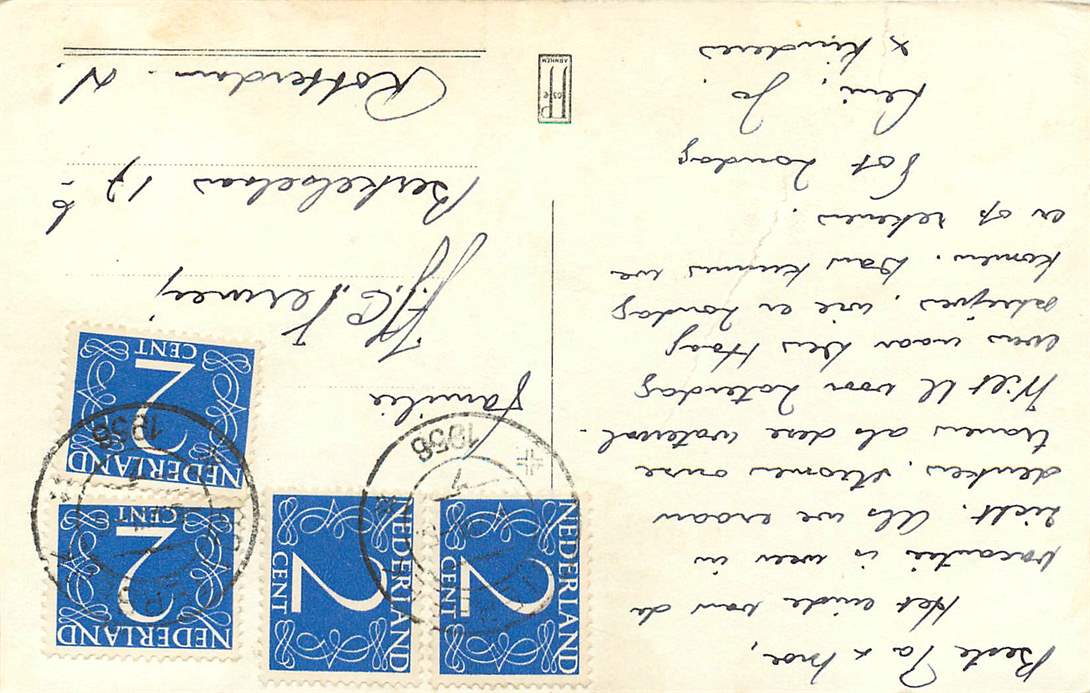 Beste Pa & Moe,
Het einde van de
vacantie is weer in
zicht. Als we eraan
denken, stromen onze
tranen als deze waterval.
Wilt U voor Zaterdag
even naar Den Haag
schrijven, wie er Zondag
komen. Dan kunnen we
er op rekenen.
Tot Zondag
Leni, Jo.
& Kinderen
NEDERLAND
2
CENT
NEDERLAND
2
CENT
NEDERLAND
2
CENT
NEDERLAND
2
CENT
1956
1956
familie
Vermeij
Berkelselaan 17 b
Rotterdam. N.
JP
ARNHEM